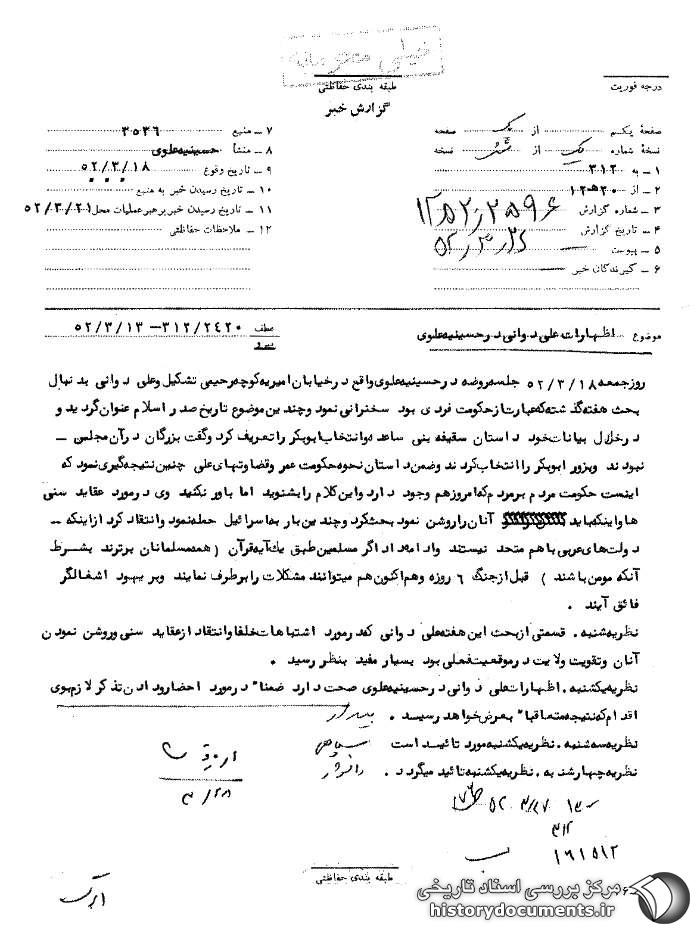 خیلی محرمانه
درجه فوریت
طبقه بندی حفاظتی
گزارش خبر
صفحهٔ یکم از یک صفحه
نسخهٔ شماره یک از شش نسخه
۱ ـ به ۳۱۲
۲ ـ از ۲۰ﻫ۱۲
۳ ـ شماره گزارش
۴ ـ تاریخ گزارش
۵ ـ پیوست
۶ ـ گیرندگان خبر
۷ ـ منبع ۳۵۳۶
۸ ـ منشأ حسینیه علوی
۹ ـ تاریخ وقوع ۵۲/۳/۱۸
۱۰ ـ تاریخ رسیدن خبر به منبع
۱۱ ـ تاریخ رسیدن خبر برهبر عملیات محل ۵۲/۳/۲۱
۱۲ ـ ملاحظات حفاظتی
موضوع اظهارات علی دوانی در حسینیه علوی
عطف ۳۱۲/۲۴۲۰ – ۵۲/۳/۱۳
روز جمعه ۵۲/۳/۱۸ جلسه روضه در حسینیه علوی واقع در خیابان امیریه کوچه رحیمی تشکیل و علی دوانی بدنبال
بحث هفته گذشته که عبارت از حکومت فردی بود سخنرانی نمود و چندین موضوع تاریخ صدر اسلام عنوان گردید و
در خلال بیانات خود داستان سقیفه بنی ساعده و انتخاب ابوبکر را تعریف کرد و گفت بزرگان در آن مجلس ـ
نبودند وبزور ابوبکر را انتخاب کردند و ضمن داستان نحوه حکومت عمر و قضاوتهای علی چنین نتیجه گیری نمود که
اینست حکومت مردم بر مردم که امروز هم وجود دارد و این کلام را بشنوید اما باور نکنید وی در مورد عقاید سنی
ها و اینکه باید آنان را روشن نمود بحث کرد و چندین بار به اسرائیل حمله نمود و انتقاد کرد از اینکه ـ
دولت های عربی با هم متحد نیستند وادامه داد اگر مسلمین طبق یک آیه قرآن ( همه مسلمانان برترند بشرط
آنکه مومن باشند ) قبل از جنگ ۶ روزه وهم اکنون هم میتوانند مشکلات را برطرف نمایند وبر یهود اشغالگر
فائق آیند .
نظریه شنبه . قسمتی از بحث این هفته علی دوانی که در مورد اشتباهات خلفا و انتقاد از عقاید سنی و روشن نمودن
آنان وتقویت ولایت در موقعیت فعلی بود بسیار مفید بنظر رسید .
نظریه یکشنبه . اظهارات علی دوانی در حسینیه علوی صحت دارد ضمناً در مورد احضار و دادن تذکر لازم بوی
اقدام که نتیجه متعاقباً بعرض خواهد رسید .
نظریه سه شنبه . نظریه یکشنبه مورد تائید است
نظریه چهارشنبه . نظریه یکشنبه تائید میگردد .
۳/۲۸
۳۱۲
۱۶۱۵۱۲
طبقه بندی حفاظتی
مرکز بررسی اسناد تاریخی
historydocuments.ir